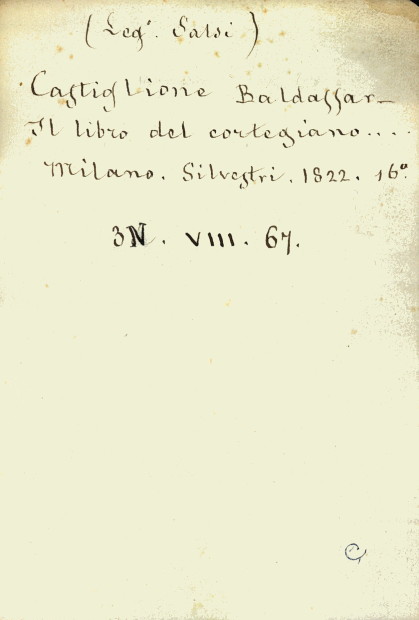 (Leg.° Salsi)
Castiglione Baldassar-
Il libro del cortegiano....
Milano. Silvestri. 1822. 16°.
3N. VIII. 67.
C